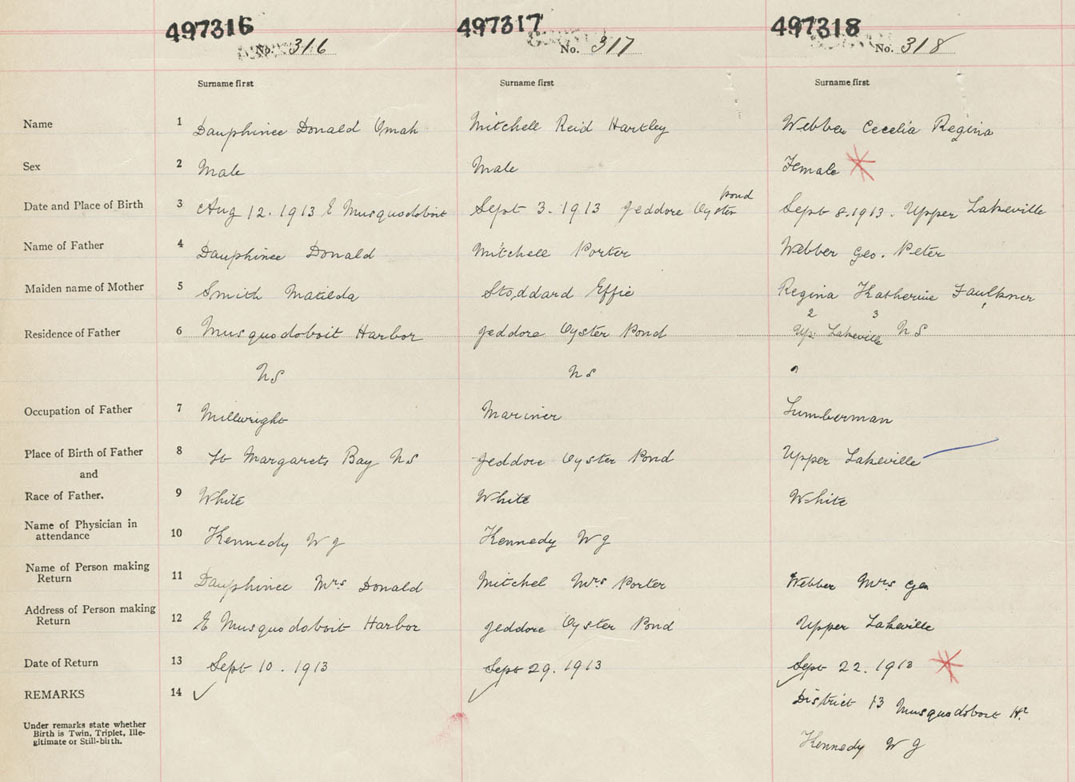 497316 497317 497318
No. 316 No. 317 No. 318
Surname first Surname first Surname first
Name 1 Dauphinee Donald Omah Mitchell Reid Hartley Webber Cecelia Regina
Sex 2 Male Male Female
Date and Place of Birth 3 Aug 12. 1913 E Musquodoboit Sept 3. 1913 Jeddore Oyster pond Sept 8.1913. Upper Lakeville
Name of Father 4 Dauphinee Donald Mitchell Porter Webber Geo. Peter
Maiden name of Mother 5 Smith Matilda Stoddard Effie Regina Katherine Faulkner
2 3 1
Residence of Father 6 Musquodoboit Harbor Jeddore Oyster Pond Up: Lakeville NS
NS NS "
Occupation of Father 7 Millwright Mariner Lumberman
Place of Birth of Father 8 St Margarets Bay NS Jeddore Oyster Pond Upper Lakeville
and
Race of Father. 9 White White White
Name of Physician in
attendance 10 Kennedy W J Kennedy W J
Name of Person making
Return 11 Dauphinee Mrs Donald Mitchel Mrs Porter Webber Mrs Geo
Address of Person making
Return 12 E Musquodoboit Harbor Jeddore Oyster Pond Upper Lakeville
Date of Return 13 Sept 10. 1913 Sept 29. 1913 Sept 22. 1913
REMARKS 14 District 13 Musquodoboit Hr
Under remarks state whether
Birth is Twin, Triplet, Ille-
gitimate or Still-birth.
Kennedy W J